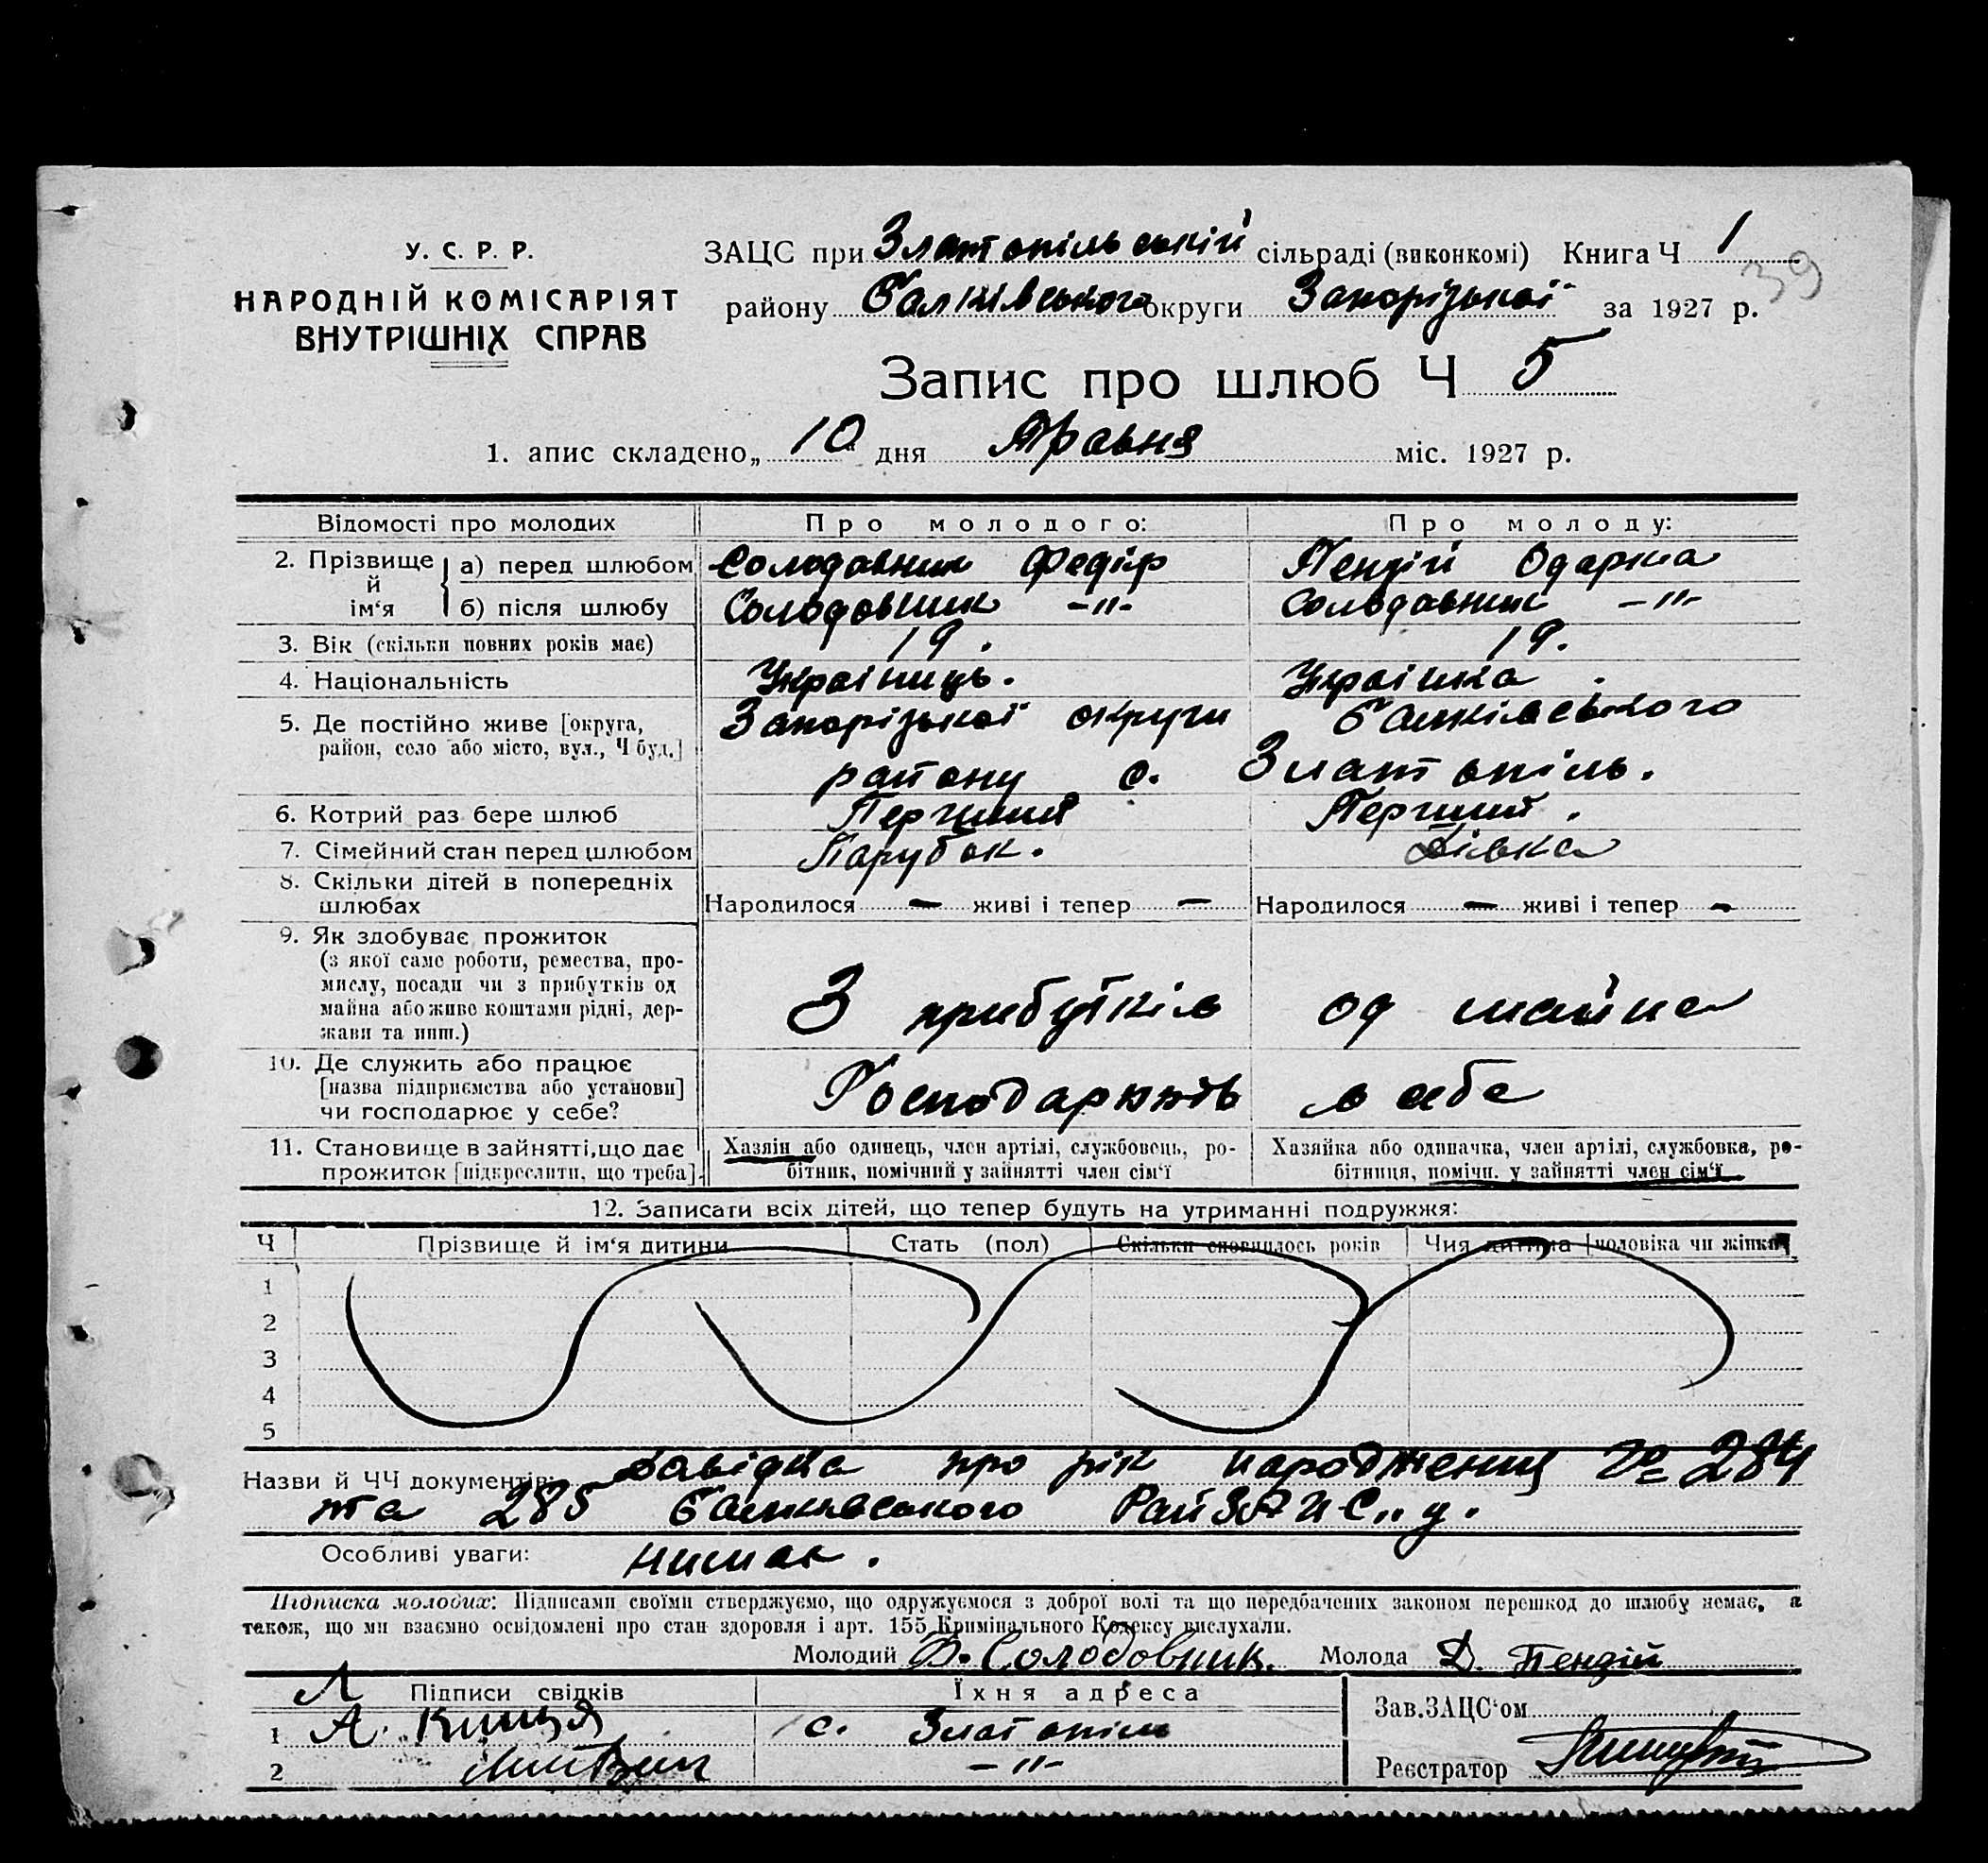 У. С. Р. Р.
НАРОДНІЙ КОМІСАРІЯТ
ВНУТРІШНІХ СПРАВ
ЗАЦС при Златопільській сільраді (виконкомі) Книга Ч 1
39
району Балківського округи Запорізької за 1927 р.
Запис про шлюб Ч 5
1. апис складено „ 10 " дня Травня міс. 1927 р.
Відомості про молодих Про молодого: Про молоду:
2. Прізвище й ім‘я а) перед шлюбом Солодовник Федір Пендій Одарка
б) після шлюбу Солодовник -"- Солодовник -"-
3. Вік (скільки повних років має) 19. 19.
4. Національність Українець. Українка.
5. Де постійно живе [округа, Запорізької округи Балківського
район, село або місто, вул., Ч буд.] району с. Златопіль.
6. Котрий раз бере шлюб Перший Перший.
7. Сімейний стан перед шлюбом Парубок. Дівка
8. Скільки дітей в попередніх
шлюбах Народилося — живі і тепер — Народилося — живі і тепер —
9. Як здобуває прожиток
(з якої саме роботи, ремества, про-
мислу, посади чи з прибутків од
майна або живе коштами рідні, дер-
жави та инш.)
З прибутків од майна
10. Де служить або працює
[назва підприємства або установи]
чи господарює у себе?
Господарюють в себе
11. Становище в зайнятті, що дає
прожиток [підкреслити, що треба].
Хазяїн або одинець, член артілі, службовець, ро-
бітник, помічний у зайнятті член сім‘ї
Хазяйка або одиначка, член артілі, службовка, ро-
бітниця, помічн. у зайнятті член сім‘ї
12. Записати всіх дітей, що тепер будуть на утриманні подружжя:
Ч Прізвище й ім‘я дитини Стать (пол) Скільки сповнилось років Чия дитина [чоловіка чи жінки]
1
2
3
4
5
Назви й ЧЧ документів: Довідка про рік народження № 284
та 285 Балківського РайЗАЦС"у.
Особливі уваги: нимає.
Підписка молодих: Підписами своїми стверджуємо, що одружуємося з доброї волі та що передбачених законом перешкод до шлюбу немає, а
також, що ми взаємно освідомлені про стан здоровля і арт. 155 Кримінального Кодексу вислухали.
Молодий Ф. Солодовник. Молода Д. Пендій
Підписи свідків Їхня адреса
1 А. с. Златопіль
2 Литвин -"-
Зав. ЗАЦС‘ом
Реєстратор